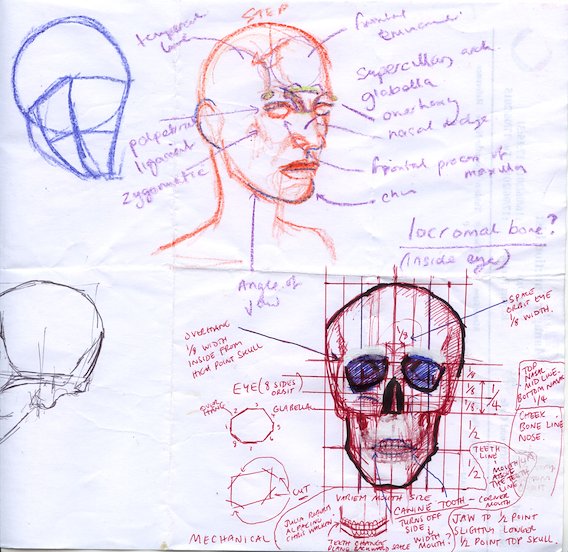 STEP
temporal
bone
frontal
eminence
superciliary arch
glabella
one
nasal
frontal process of
maxilla
palpebral
ligament
zygomatic
chin
locromal bone?
(inside eye)
Angle of
OVERHANG
1/8 WIDTH
INSIDE FROM
HIGH POINT SKULL
1/8
SPACE
ORBIT EYE
1/8 WIDTH.
EYE (8 SIDES
ORBIT)
OVER
HANG
GLABELLA
1/8
1/8
1/4
TOP
NASAL
MID LINE.
BOTTOM NASAL
1/4
CHEEK
BONE LINE
NOSE.
1/2
TEETH
LINE
1/2
CUT
MOUTH SIZE
CANINE TOOTH - CORNER
MOUTH
JULIA ROBERTS
AL PACINO
CHRIS WALKEN
TURNS OFF
SIDE.
WIDTH
MOUTH?
TEETH CHANGE
PLANE
JAW TO 1/2 POINT
SLIGHTLY LONGER
1/2 POINT TOP SKULL.
MECHANICAL